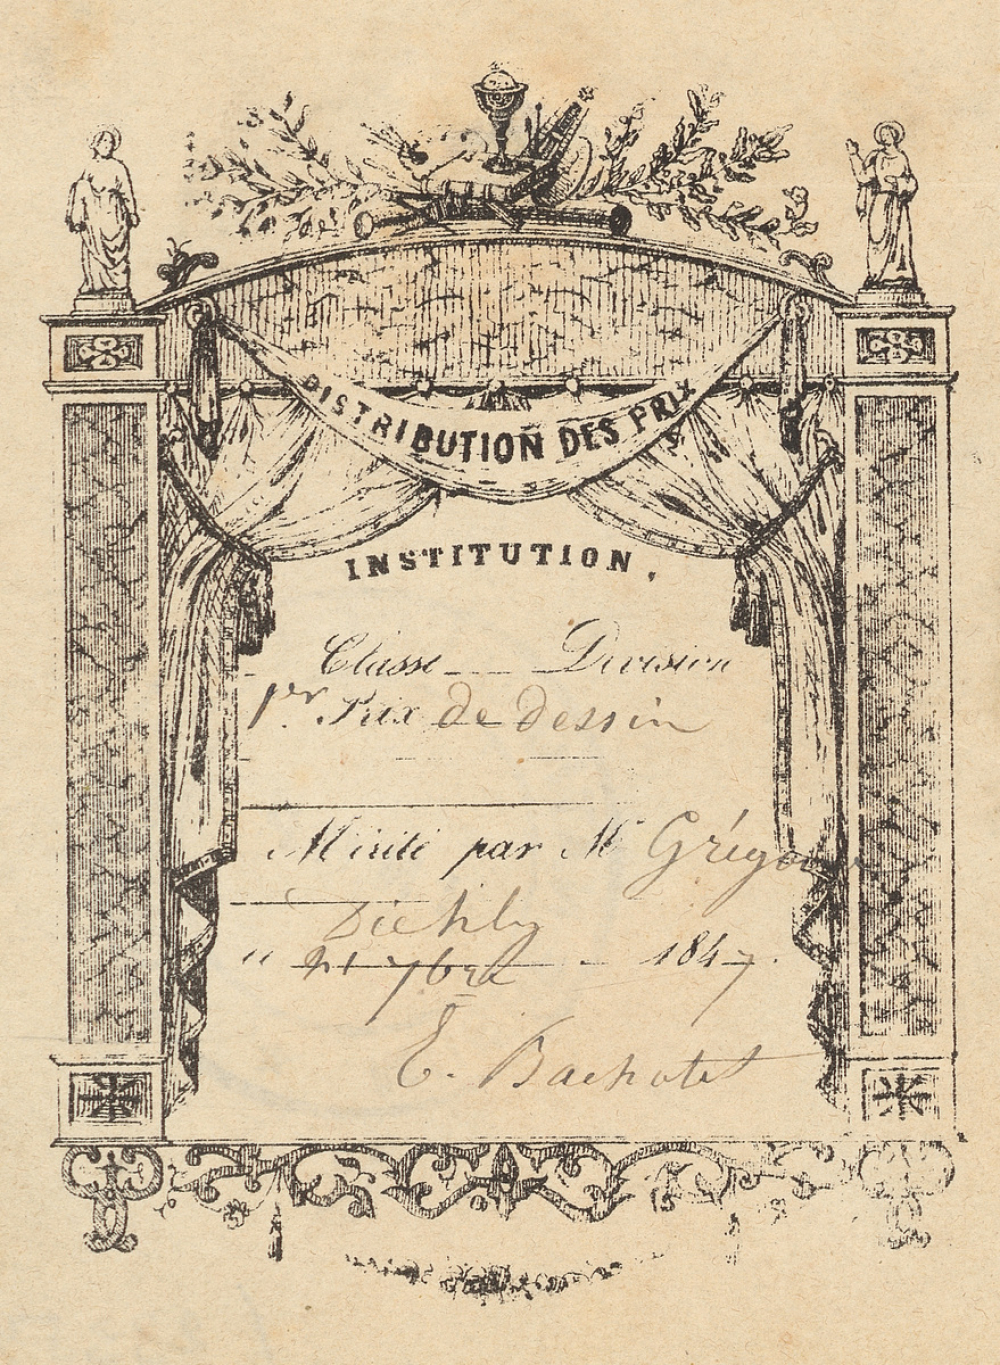 DISTRIBUTION DES PRIX
INSTITUTION.
Classe Division
1er Prix de dessin
Mérité par Mr Grégoire
Diehly
7bre 1847.
E. Bachotet